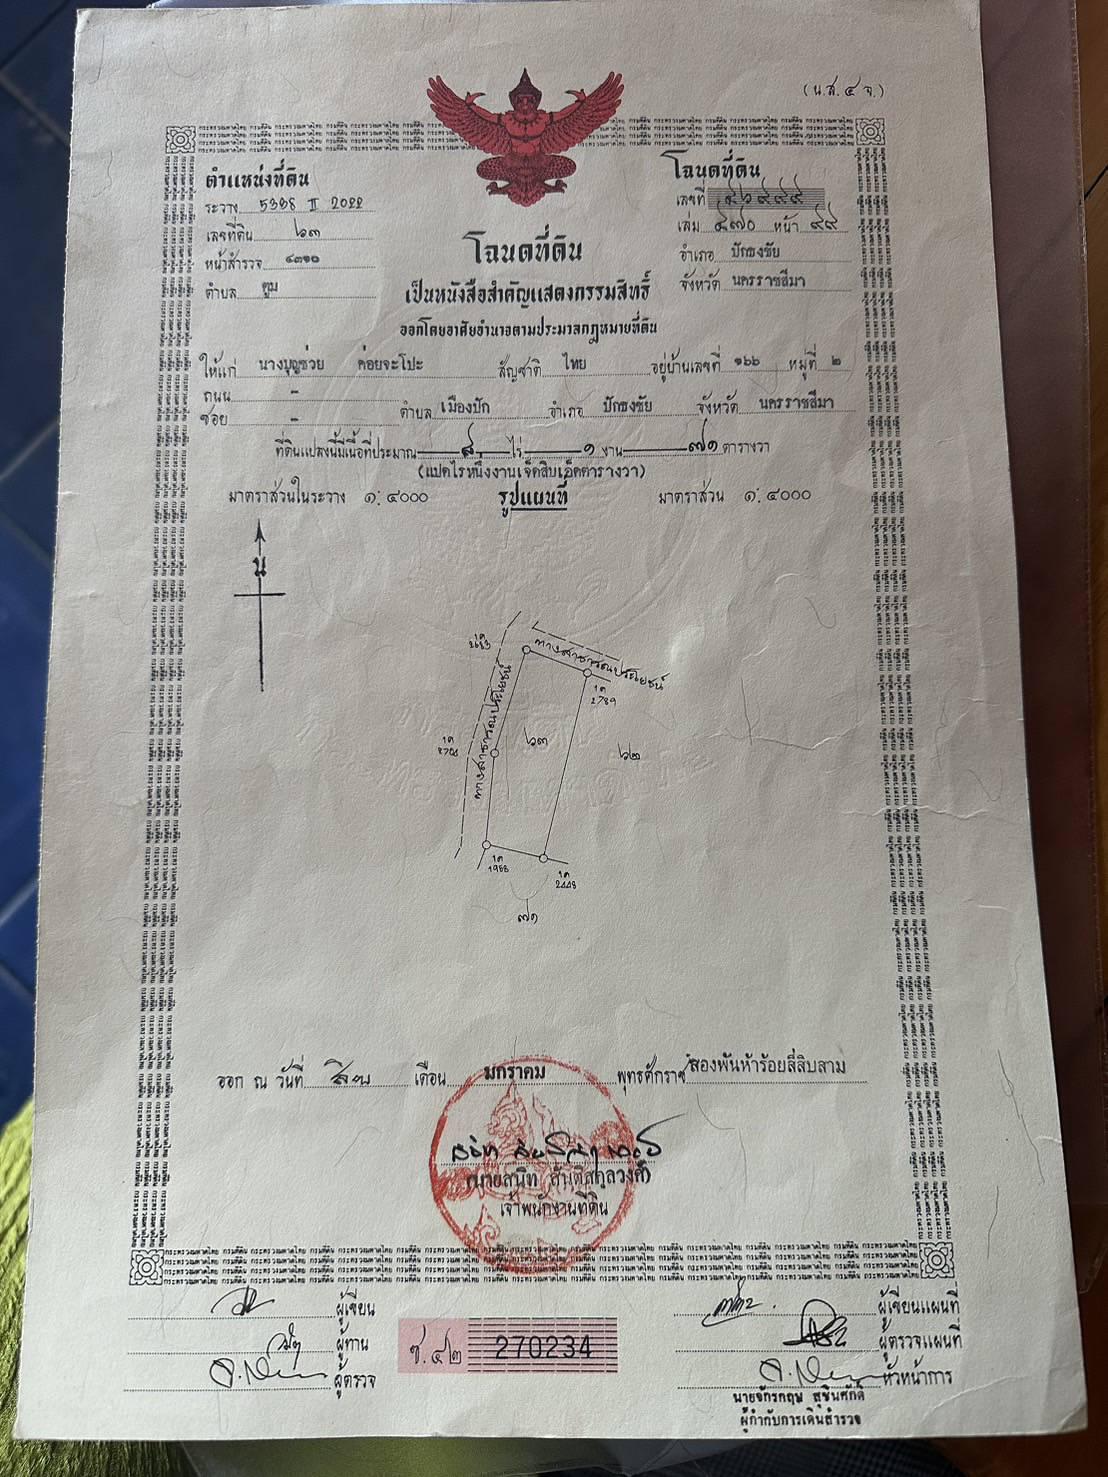 (น.ส. ๔ จ.)
ตำแหน่งที่ดิน
ระวาง 5338 II 2022
เลขที่ดิน ๖๓
หน้าสำรวจ ๔๓๑๐
ตำบล ตูม
โฉนดที่ดิน
เลขที่
เล่ม ๔๗๐ หน้า ๙๙
อำเภอ ปักธงชัย
จังหวัด นครราชสีมา
โฉนดที่ดิน
เป็นหนังสือสำคัญแสดงกรรมสิทธิ์
ออกโดยอาศัยอำนาจตามประมวลกฎหมายที่ดิน
ให้แก่ นางบุญช่วย ค่อยจะโปะ สัญชาติ ไทย อยู่บ้านเลขที่ ๑๖๖ หมู่ที่ ๒
ถนน -
ซอย - ตำบล เมืองปัก อำเภอ ปักธงชัย จังหวัด นครราชสีมา
ที่ดินแปลงนี้มีเนื้อที่ประมาณ ๘ ไร่ ๑ งาน ๗๑ ตารางวา
(แปดไร่หนึ่งงานเจ็ดสิบเอ็ดตารางวา)
มาตราส่วนในระวาง ๑:๔๐๐๐ รูปแผนที่ มาตราส่วน ๑:๔๐๐๐
น
ทางสาธารณประโยชน์
ทางสาธารณประโยชน์
๖๓
๖๒
๗๑
ออก ณ วันที่ สิบ เดือน มกราคม พุทธศักราช สองพันห้าร้อยสี่สิบสาม
(นายสนิท สันติสกุลวงศ์)
เจ้าพนักงานที่ดิน
ผู้เขียน
ผู้ทาน
ผู้ตรวจ
ช. ๔๒ 270234
ผู้เขียนแผนที่
ผู้ตรวจแผนที่
หัวหน้าการ
นายจักรกฤษ สุชินศักดิ์
ผู้กำกับการเดินสำรวจ